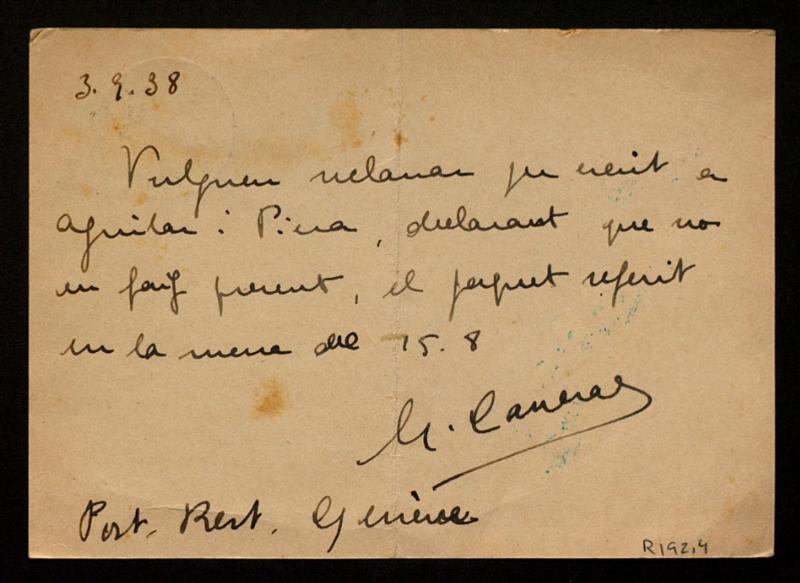 3.9.38
Vulguen reclamar per escrit a
Aguilar i Piera, declarant que no
em faig present, el paquet referit
en la meva del 15.8
Post. Rest. Genève
R192,4